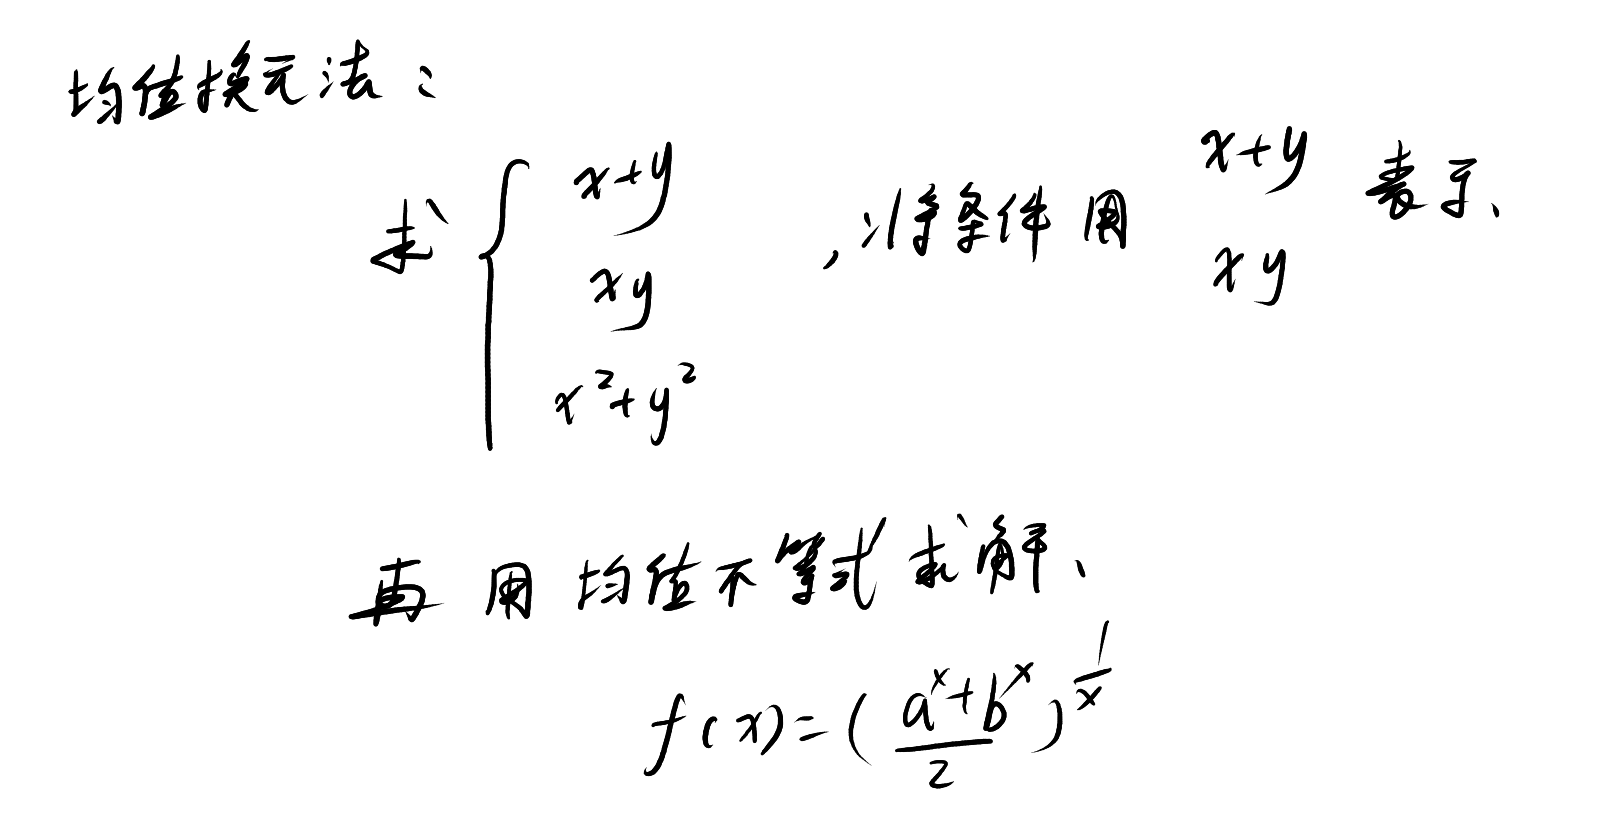 均值换元法:
求 { x+y
xy
x²+y² , 将条件用 x+y
xy 表示、
再用均值不等式求解、
f(x)=(\frac{a^x+b^x}{2})^{\frac{1}{x}}